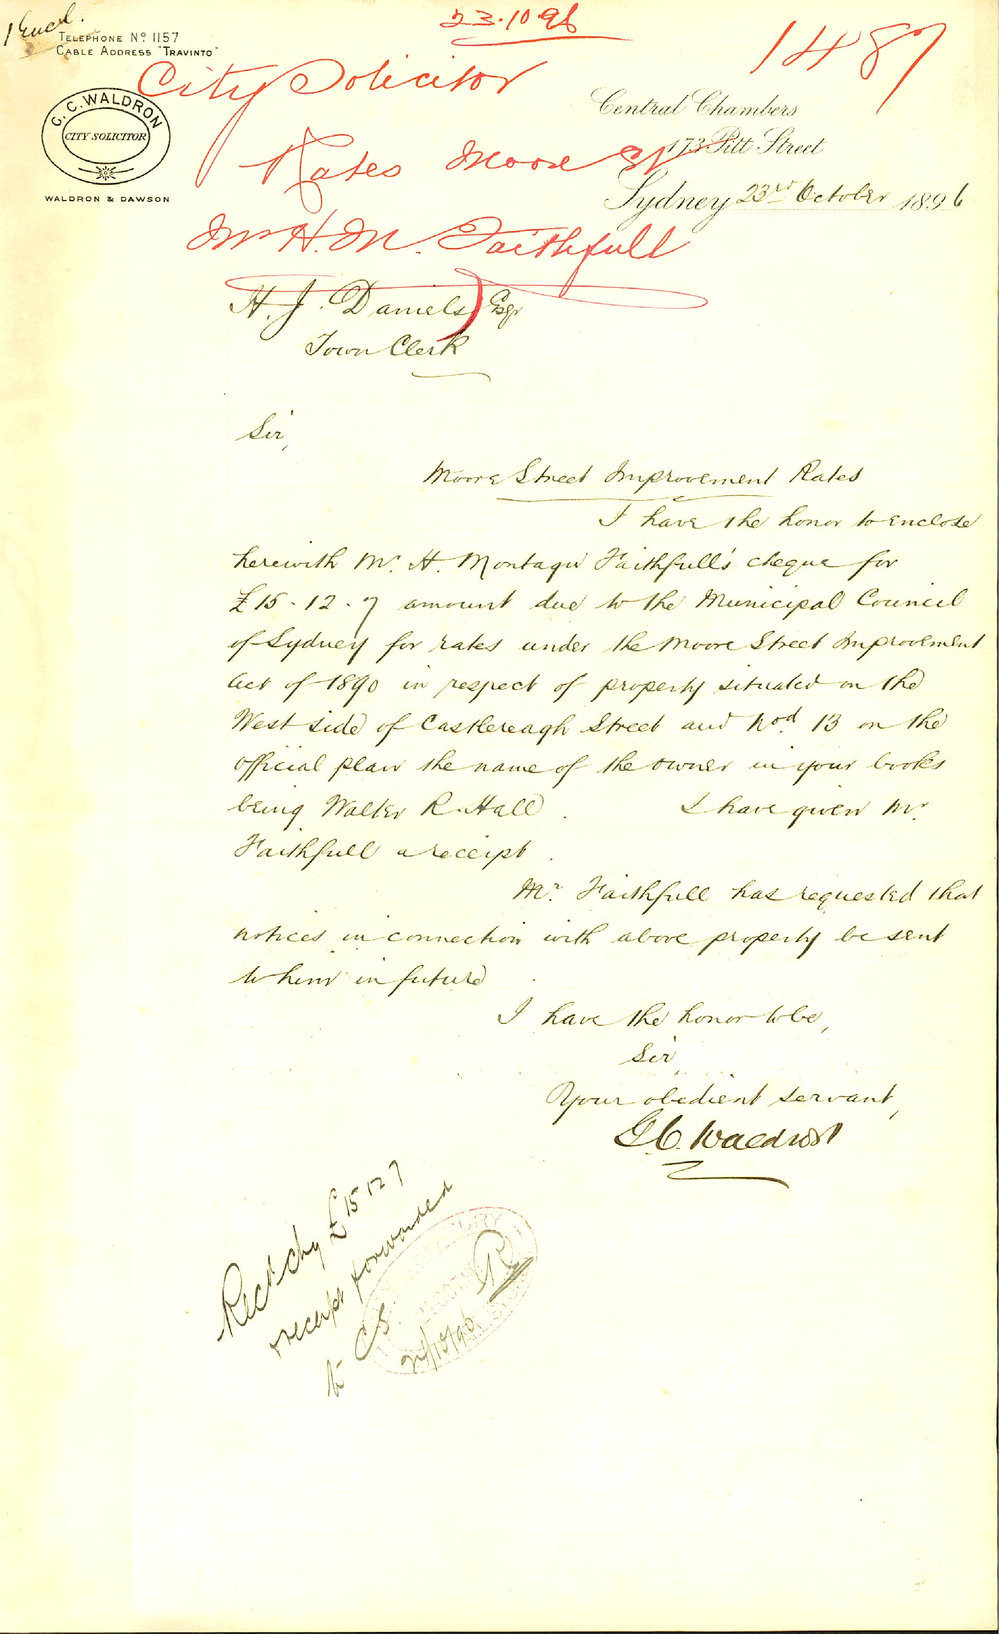 1 Encl.
23.10.96
TELEPHONE No 1157
CABLE ADDRESS "TRAVINTO"
1487
City Solicitor
G. C. WALDRON
CITY SOLICITOR
WALDRON & DAWSON
Central Chambers
173 Pitt Street
Rates Moore St
Sydney 23rd October 1896
Mr H. M. Faithfull
H. J. Daniels Esqr
Town Clerk
Sir,
Moore Street Improvement Rates
I have the honor to enclose
herewith Mr. H. Montagu Faithfull's cheque for
£15-12-7 amount due to the Municipal Council
of Sydney for rates under the Moore Street Improvement
Act of 1890 in respect of property situated on the
West side of Castlereagh Street and Nod. 13 on the
official plan the name of the owner in your books
being Walter R. Hall. I have given Mr.
Faithfull a receipt.
Mr. Faithfull has requested that
notices in connection with above property be sent
to him in future.
I have the honor to be,
Sir,
Your obedient servant,
G. C. Waldron
Recd chq £15 12 7
receipt forwarded
to CS